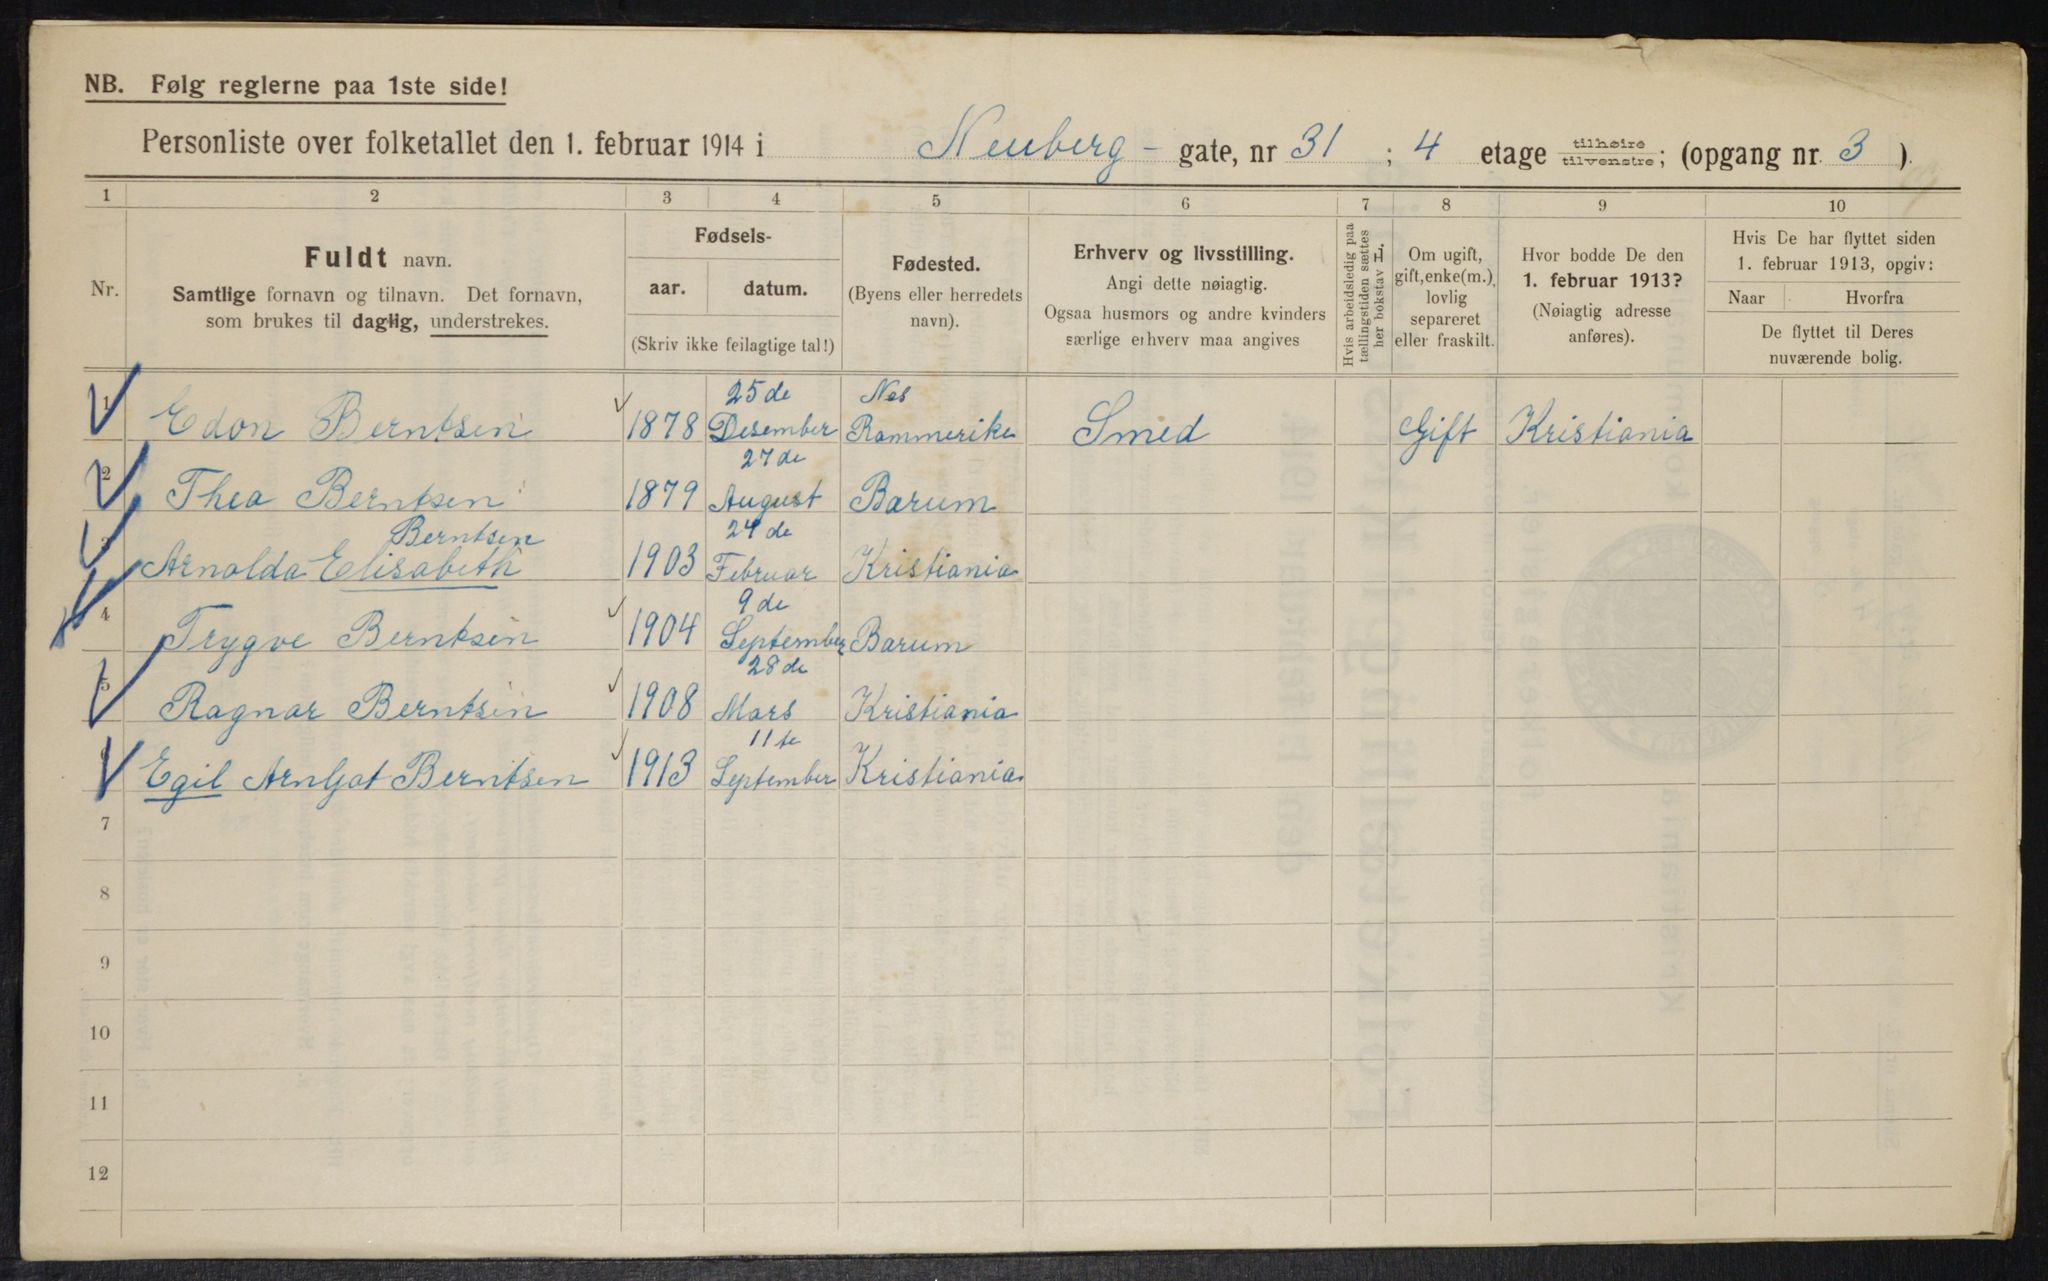 NB. Følg reglerne paa 1ste side!
Personliste over folketallet den 1. februar 1914 i Neuberg - gate, nr 31 ; 4 etage tilhøire tilvenstre; (opgang nr. 3 ).
1 2 3 4 5 6 7 8 9 10
Nr.
Fuldt navn.
Samtlige fornavn og tilnavn. Det fornavn,
som brukes til daglig, understrekes.
Fødsels-
aar. datum.
(Skriv ikke feilagtige tal!)
Fødested.
(Byens eller herredets
navn).
Erhverv og livsstilling.
Angi dette nøiagtig.
Ogsaa husmors og andre kvinders
særlige erhverv maa angives
Hvis arbeidsledig paa
tællingstiden sættes
her bokstav L.
Om ugift,
gift, enke(m.),
lovlig
separeret
eller fraskilt.
Hvor bodde De den
1. februar 1913?
(Nøiagtig adresse
anføres).
Hvis De har flyttet siden
1. februar 1913, opgiv:
Naar Hvorfra
De flyttet til Deres
nuværende bolig.
25de Nes
1 Edon Berntsen 1878 Desember Rammerike Smed Gift Kristiania
27de
2 Thea Berntsen 1879 August Barum
Berntsen 24de
3 Arnolda Elisabeth 1903 Februar Kristiania
9de
4 Trygve Berntsen 1904 September Barum
28de
5 Ragnar Berntsen 1908 Mars Kristiania
11te
Egil Arnljot Berntsen 1913 September Kristiania
7
8
9
10
11
12